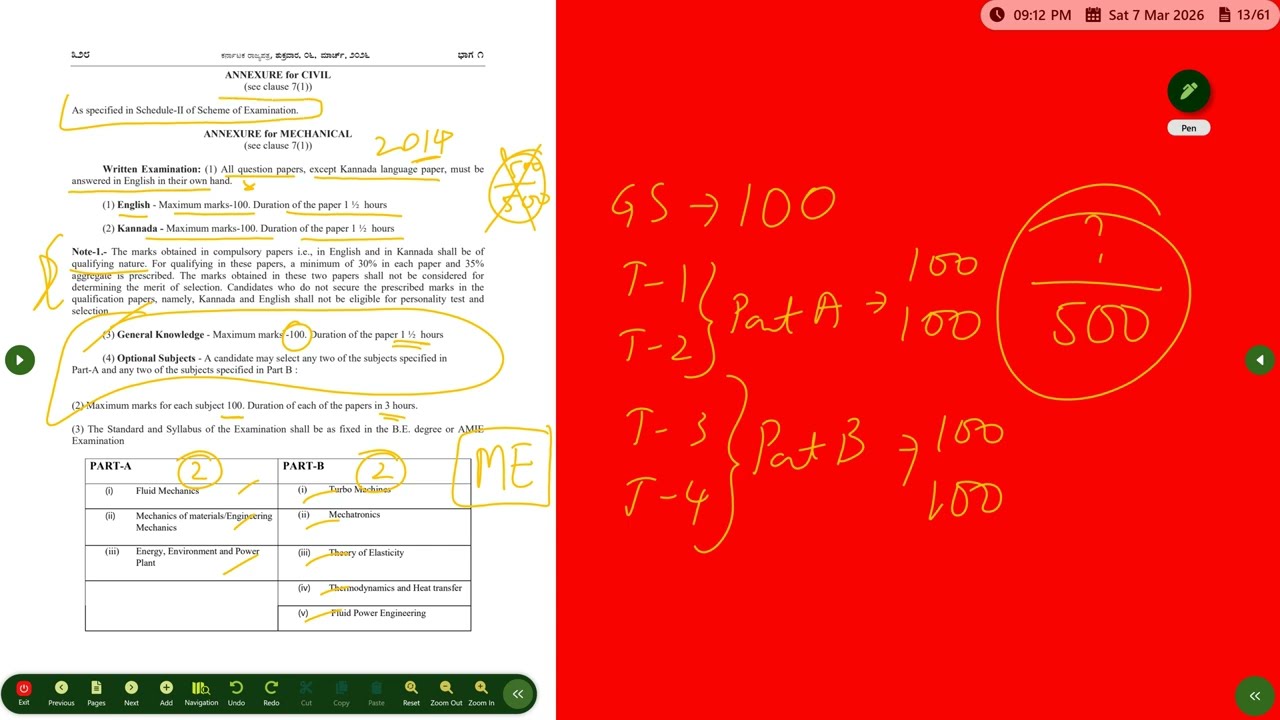 ೩೨೮ ಕರ್ನಾಟಕ ರಾಜ್ಯಪತ್ರ, ಶುಕ್ರವಾರ, ೦೬, ಮಾರ್ಚ್, ೨೦೨೬ ಭಾಗ ೧
ANNEXURE for CIVIL
(see clause 7(1))
As specified in Schedule-II of Scheme of Examination.
ANNEXURE for MECHANICAL
(see clause 7(1))
2014
Written Examination: (1) All question papers, except Kannada language paper, must be
answered in English in their own hand.
500
500
(1) English - Maximum marks-100. Duration of the paper 1 ½ hours
(2) Kannada - Maximum marks-100. Duration of the paper 1 ½ hours
Note-1.- The marks obtained in compulsory papers i.e., in English and in Kannada shall be of
qualifying nature. For qualifying in these papers, a minimum of 30% in each paper and 35%
aggregate is prescribed. The marks obtained in these two papers shall not be considered for
determining the merit of selection. Candidates who do not secure the prescribed marks in the
qualification papers, namely, Kannada and English shall not be eligible for personality test and
selection.
(3) General Knowledge - Maximum marks-100. Duration of the paper 1 ½ hours
(4) Optional Subjects - A candidate may select any two of the subjects specified in
Part-A and any two of the subjects specified in Part B :
(2) Maximum marks for each subject 100. Duration of each of the papers in 3 hours.
(3) The Standard and Syllabus of the Examination shall be as fixed in the B.E. degree or AMIE
Examination
ME
PART-A 2 PART-B 2
(i) Fluid Mechanics (i) Turbo Machines
(ii) Mechanics of materials/Engineering
Mechanics (ii) Mechatronics
(iii) Energy, Environment and Power
Plant (iii) Theory of Elasticity
(iv) Thermodynamics and Heat transfer
(v) Fluid Power Engineering
09:12 PM Sat 7 Mar 2026 13/61
Pen
GS → 100
T-1
T-2
Part A → 100
100
?
500
T-3
T-4
Part B → 100
100
Exit Previous Pages Next Add Navigation Undo Redo Cut Copy Paste Reset Zoom Out Zoom In